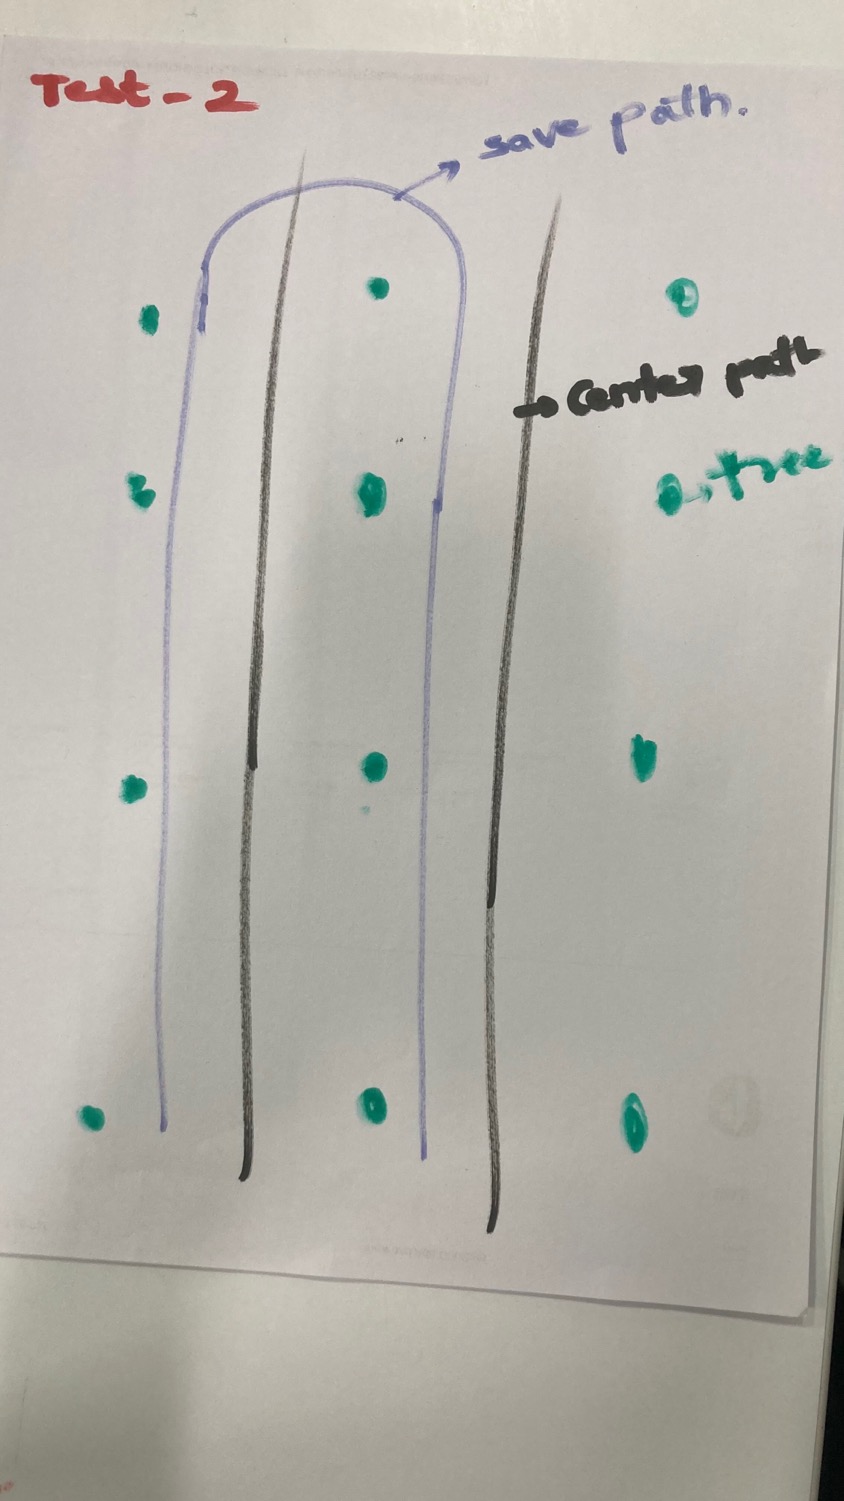 Test - 2
save path.
center path
tree